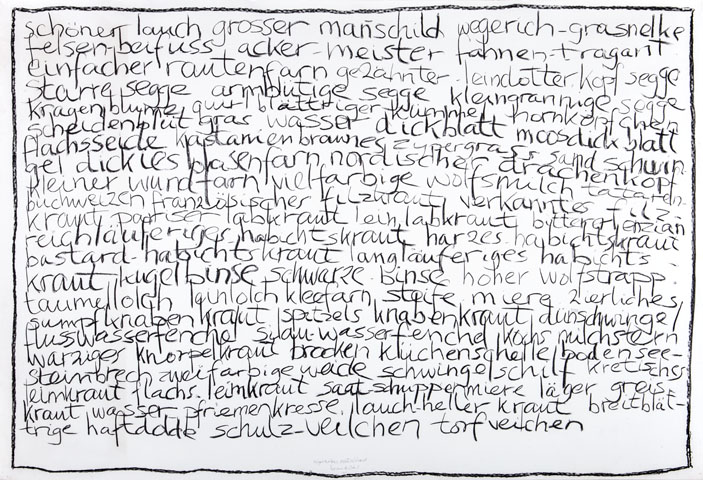 schöner lauch grosser mannschild wegerich-grasnelke
felsen-beifuss acker-meister fahnen-tragant
einfacher rautenfarn gezähnter leindotter kopf segge
starre segge armblütige segge kleingrannige segge
kragenblume quirlblättriger kümmel hornköpfchen
scheidenblütgras wasser dickblatt moosdickblatt
flachsseide kastanienbraunes zypergras sand schwin
gel dickies blasenfarn nordischer drachenkopf
kleiner wurdfarn vielfarbige wolfsmilch tataren-
buchweizen französischer filzkraut verkanntes filz-
kraut pariser labkraut lein labkraut bitterer enzian
reichläuferiges habichtskraut harzes-habichtskraut
bastard-habichtskraut langläuferiges habichts-
kraut kugelbinse schwarze binse hoher wolfstrapp
taumellolch leinlolch kleefarn steife miere zierliches
sumpfknabenkraut spitzels knabenkraut dünschwingel
flusswasserfenchel wasserfenchel kochs milchstern
warziges knorpelkraut brocken küchenschelle bodensee-
steinbrech zweifarbige weide schwingelschilf kretisches
leimkraut flachs leimkraut saatschuppenmiere läger greis-
kraut wasser-pfriemenkresse lauch-heller kraut breitblät-
trige haftdolde schulz-veilchen torfveilchen